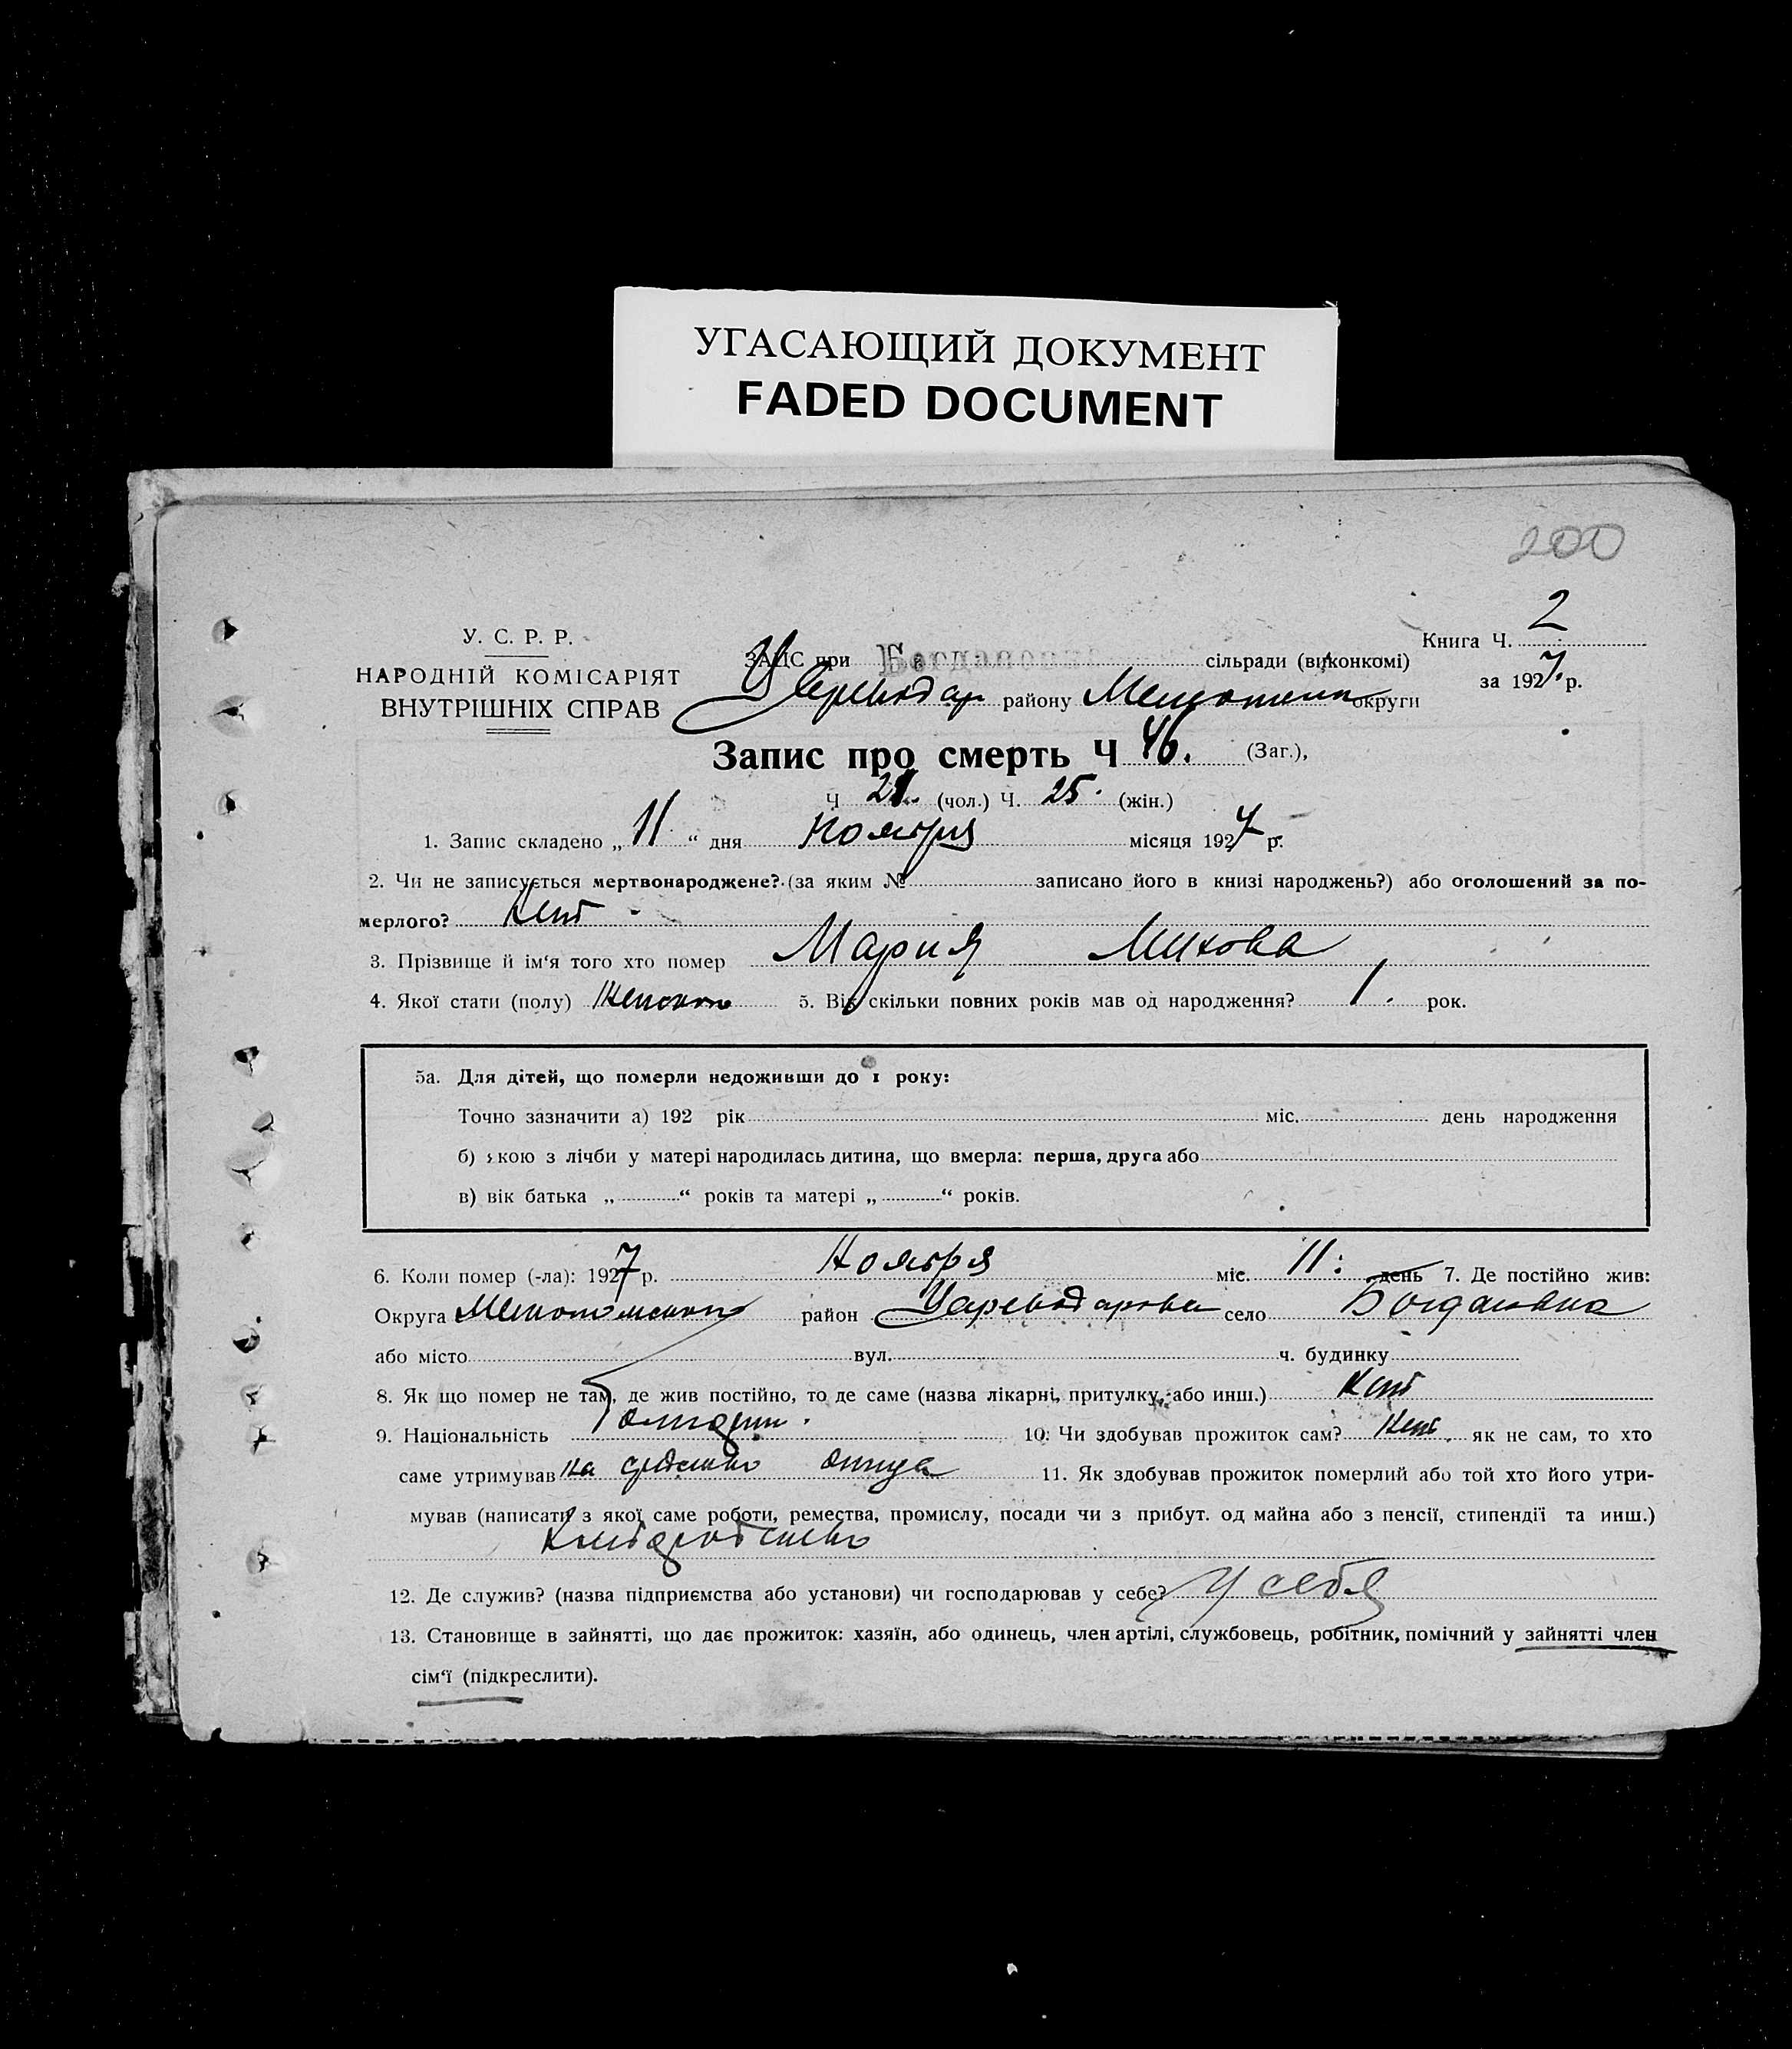 УГАСАЮЩИЙ ДОКУМЕНТ
FADED DOCUMENT
200
У. С. Р. Р.
НАРОДНІЙ КОМІСАРІЯТ
ВНУТРІШНІХ СПРАВ
Книга Ч. 2
за 1927 р.
ЗАЦС при Богдановк сільради (виконкомі)
Цареводар району Мелитопол округи
Запис про смерть Ч 46. (Заг.),
Ч 21. (чол.) Ч. 25. (жін.)
1. Запис складено „ 11 “ дня Ноября місяця 1927 р.
2. Чи не записується мертвонароджене? (за яким № записано його в книзі народжень?) або оголошений за по-
мерлого? Нет
3. Прізвище й ім‘я того хто помер Мария Митова
4. Якої стати (полу) Женского 5. Вік скільки повних років мав од народження? 1. рок.
5а. Для дітей, що померли недоживши до 1 року:
Точно зазначити а) 192 рік міс. день народження
б) якою з лічби у матері народилась дитина, що вмерла: перша, друга або
в) вік батька „ “ років та матері „ “ років.
6. Коли помер (-ла): 1927 р. Ноября міс. 11: день 7. Де постійно жив:
Округа Мелитопольского район Цареводарова село Богдановка
або місто вул. ч. будинку
8. Як що помер не там, де жив постійно, то де саме (назва лікарні, притулку, або инш.) Нет
9. Національність Болгарин. 10. Чи здобував прожиток сам? Нет. як не сам, то хто
саме утримував на средство отца 11. Як здобував прожиток померлий або той хто його утри-
мував (написати з якої саме роботи, ремества, промислу, посади чи з прибут. од майна або з пенсії, стипендії та инш.)
Хлебородство
12. Де служив? (назва підприємства або установи) чи господарював у себе? у себя
13. Становище в зайнятті, що дає прожиток: хазяїн, або одинець, член артілі, службовець, робітник, помічний у зайнятті член
сім‘ї (підкреслити).